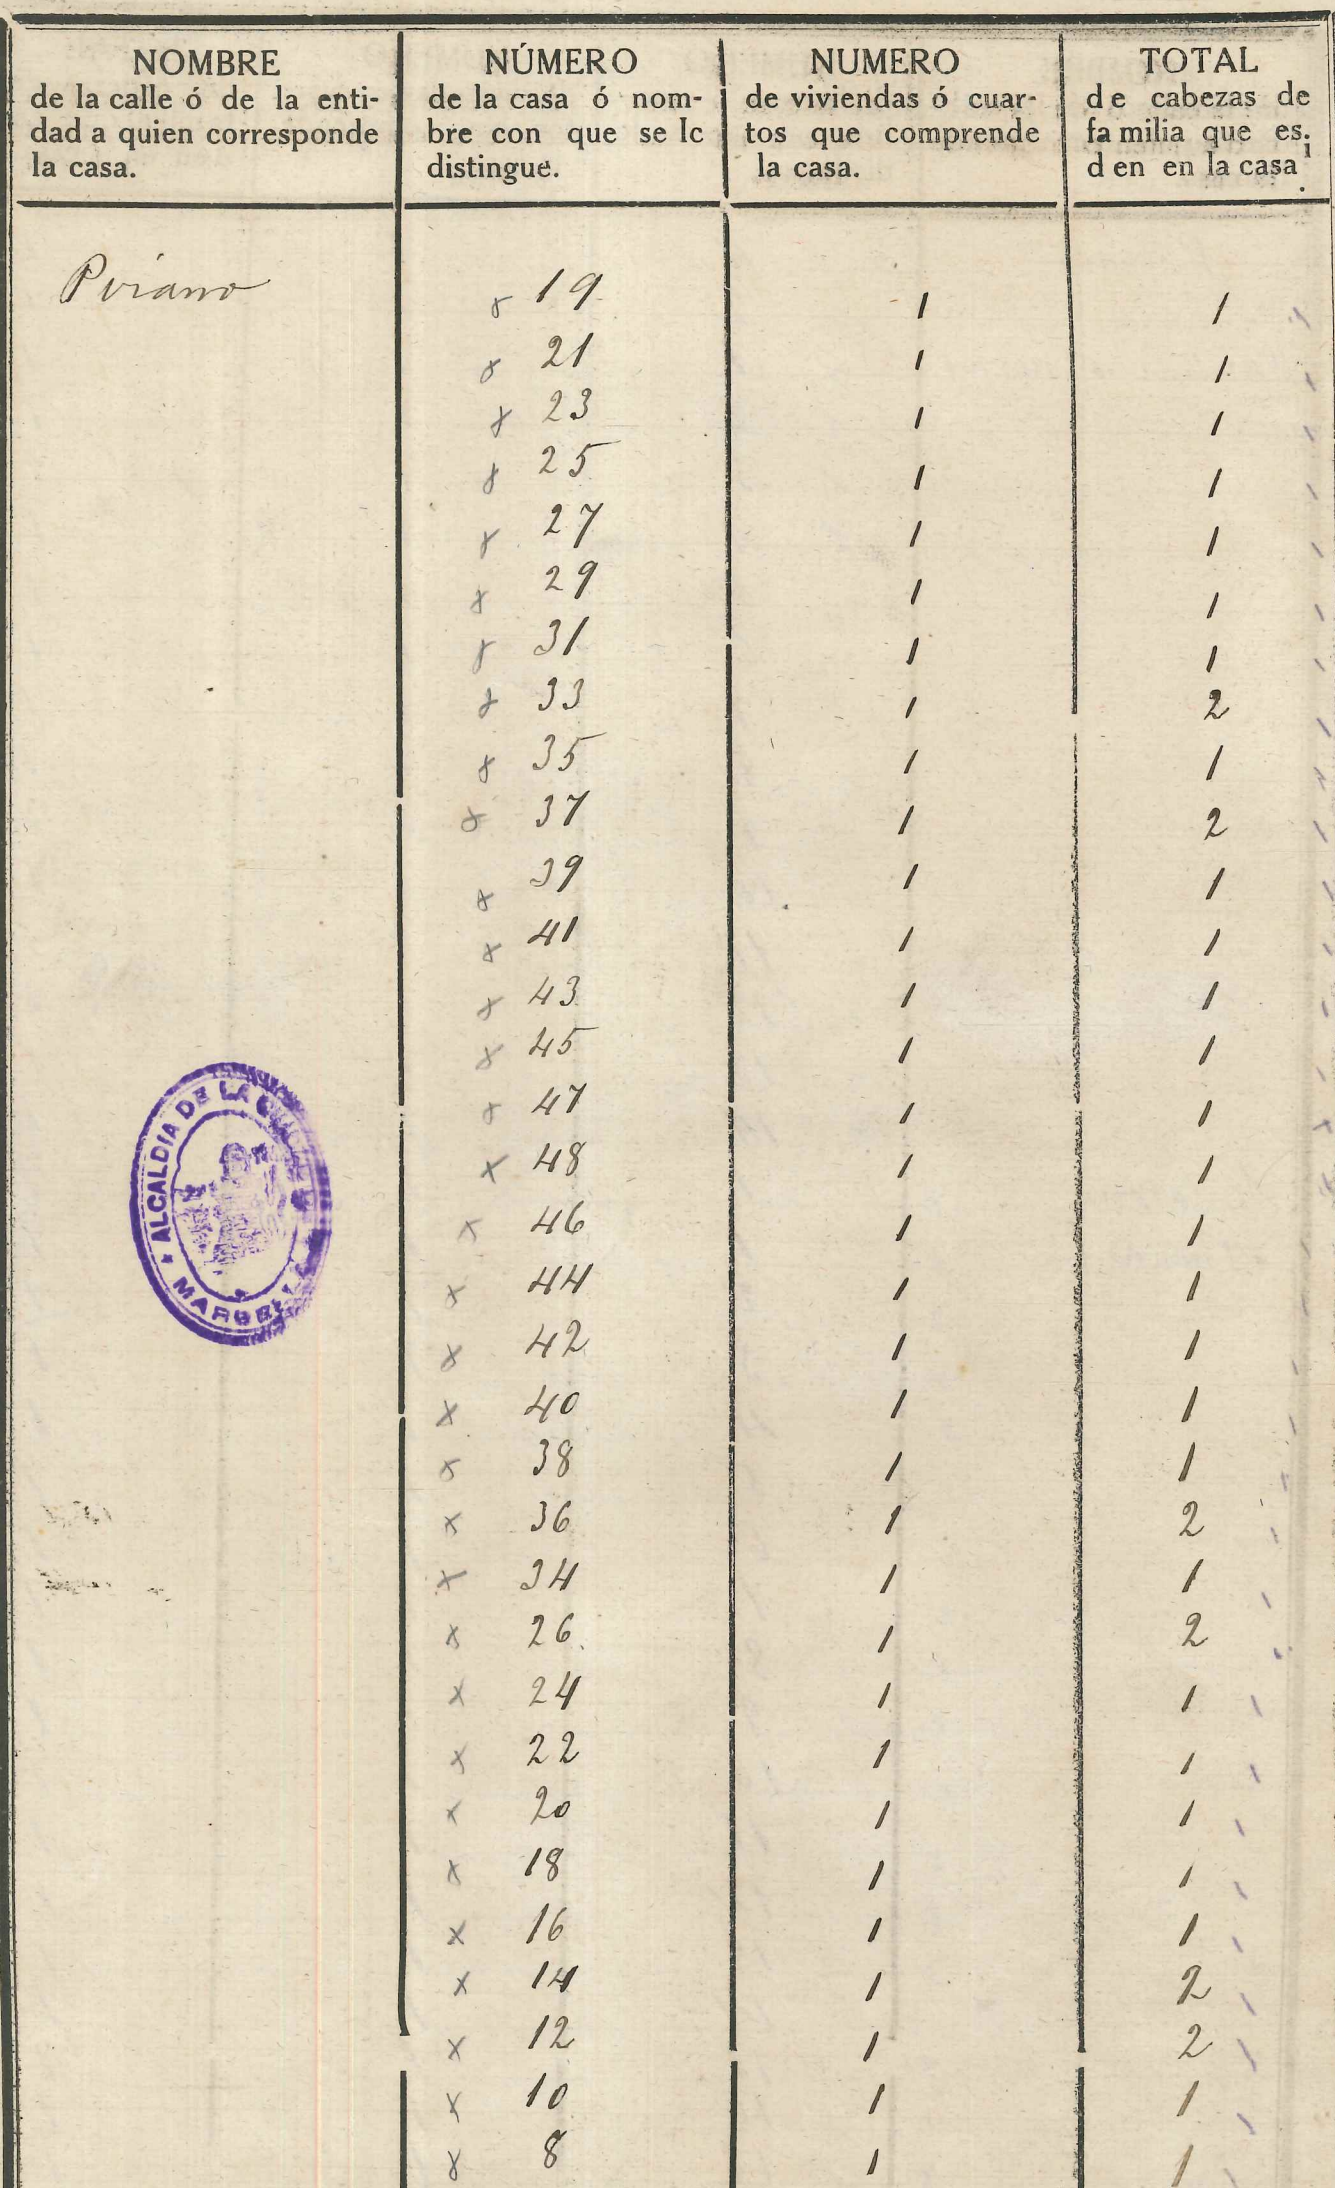 NOMBRE
de la calle ó de la enti-
dad a quien corresponde
la casa.
NÚMERO
de la casa ó nom-
bre con que se lc
distingue.
NUMERO
de viviendas ó cuar-
tos que comprende
la casa.
TOTAL
de cabezas de
fa milia que es.
i
d en en la casa
.
x 19 1 1
x 21 1 1
x 23 1 1
x 25 1 1
x 27 1 1
x 29 1 1
x 31 1 1
x 33 1 2
x 35 1 1
x 37 1 2
x 39 1 1
x 41 1 1
x 43 1 1
x 45 1 1
x 47 1 1
x 48 1 1
x 46 1 1
x 44 1 1
x 42 1 1
x 40 1 1
x 38 1 1
x 36 1 2
x 34 1 1
x 26 1 2
x 24 1 1
x 22 1 1
x 20 1 1
x 18 1 1
x 16 1 1
x 14 1 2
x 12 1 2
x 10 1 1
x 8 1 1
ALCALDIA DE LA
MARBELLA